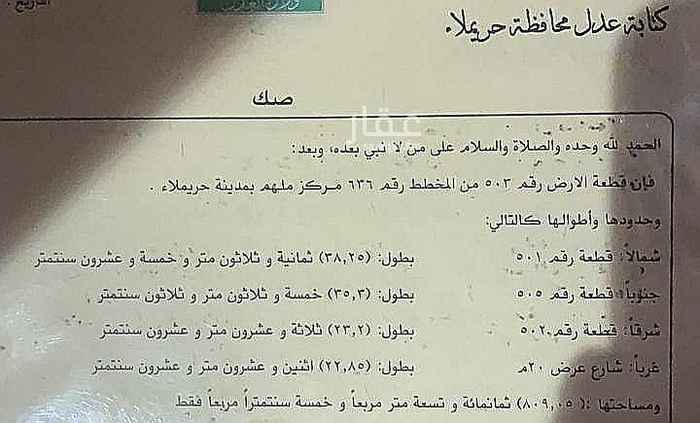 التاريخ :
وزارة العدل
كتابة عدل محافظة حريملاء
صك
عقار
الحمد لله وحده والصلاة والسلام على من لا نبي بعده، وبعد:
فإن قطعة الارض رقم ٥٠٣ من المخطط رقم ٦٣٦ مركز ملهم بمدينة حريملاء .
وحدودها وأطوالها كالتالي:
شمالاً: قطعة رقم ٥٠١ بطول: (٣٨,٢٥) ثمانية و ثلاثون متر و خمسة و عشرون سنتمتر
جنوباً: قطعة رقم ٥٠٥ بطول: (٣٥,٣) خمسة و ثلاثون متر و ثلاثون سنتمتر
شرقاً: قطعة رقم ٥٠٢ بطول: (٢٣,٢) ثلاثة و عشرون متر و عشرون سنتمتر
غرباً: شارع عرض ٢٠م بطول: (٢٢,٨٥) اثنين و عشرون متر و عشرون سنتمتر
ومساحتها :( ٨٠٩,٠٥) ثمانمائة و تسعة متر مربعاً و خمسة سنتمتراً مربعاً فقط